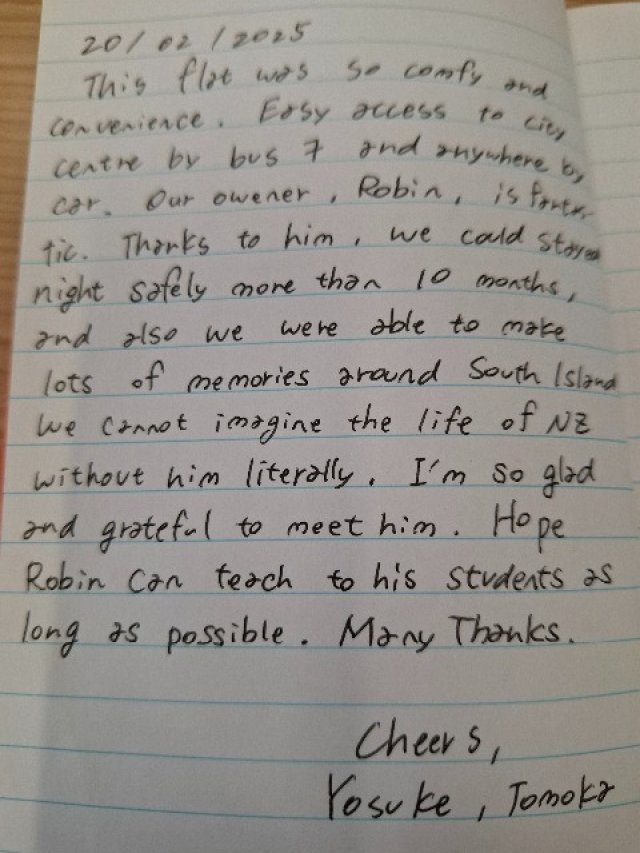 20/02/2025
This flat was so comfy and
convenience. Easy access to city
centre by bus 7 and anywhere by
car. Our owener, Robin, is fantas-
tic. Thanks to him, we could stayed
night safely more than 10 months,
and also we were able to make
lots of memories around South Island
We cannot imagine the life of NZ
without him literally. I'm so glad
and grateful to meet him. Hope
Robin can teach to his students as
long as possible. Many Thanks.
Cheers,
Yosuke, Tomoka